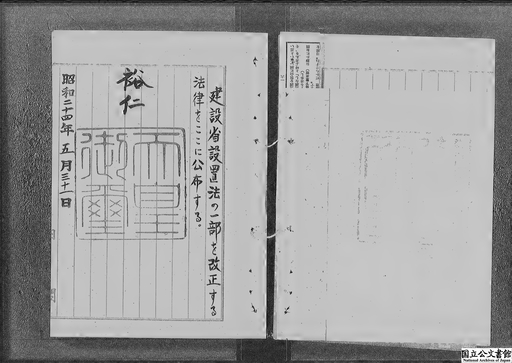 建設省設置法の一部を改正する
法律をここに公布する。
裕仁
天皇
御璽
昭和二十四年五月三十一日
国立公文書館
National Archives of Japan